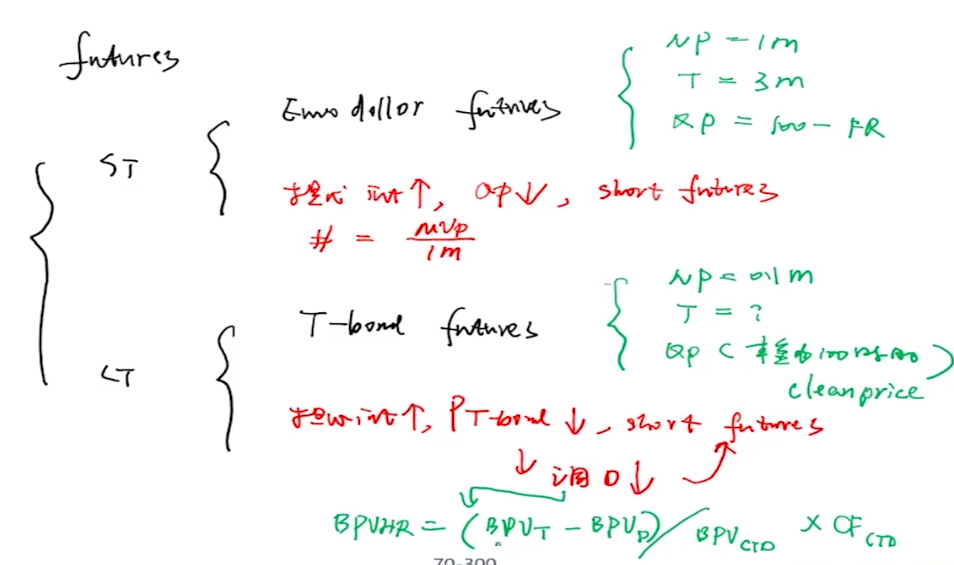 futures
ST
Euro dollor futures
NP = 1m
T = 3m
QP = 100 - FR
担心 int↑, QP↓, short futures
# = MVP / 1m
LT
T-bond futures
NP = 0.1m
T = ?
QP ( 本金为100时的
clean price )
担心int↑, PT-bond ↓, short futures
↓ 调 D ↓
BPVHR = (BPV_T - BPV_P) / BPV_CTD × CF_CTD
70-300